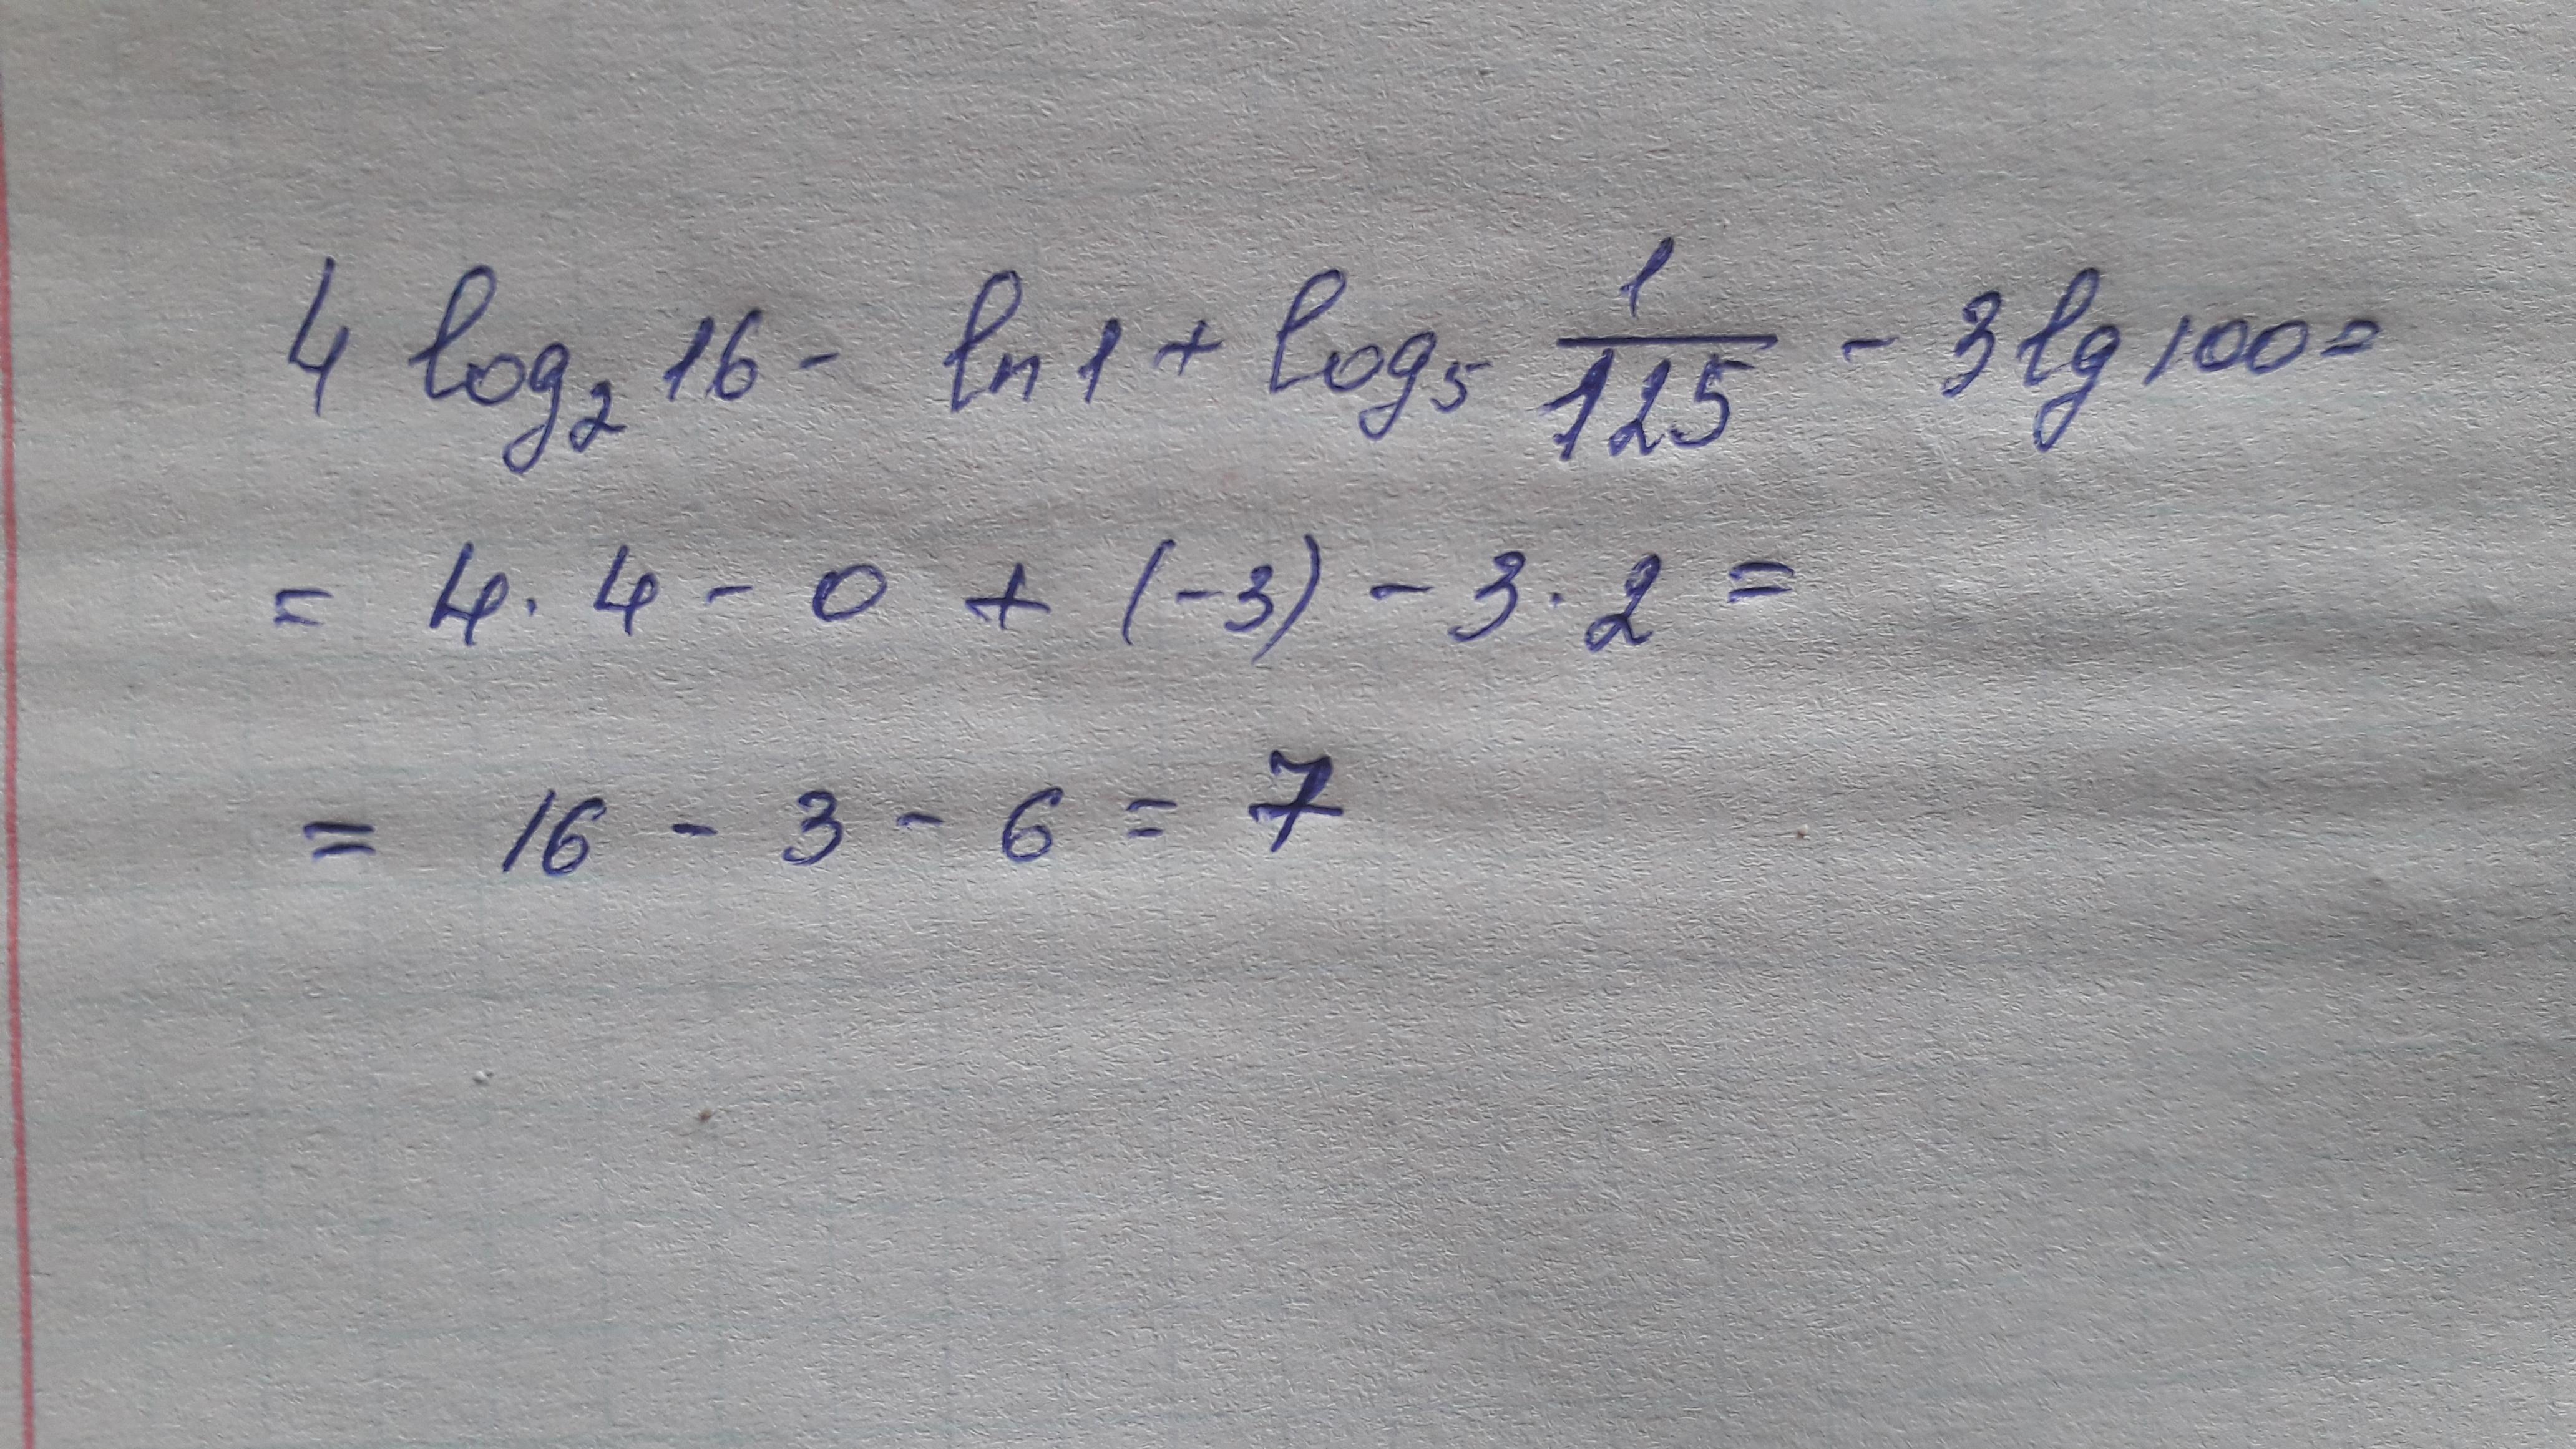 4 log₂ 16 - ln 1 + log₅ 1/125 - 3 lg 100 =
= 4 · 4 - 0 + (-3) - 3 · 2 =
= 16 - 3 - 6 = 7